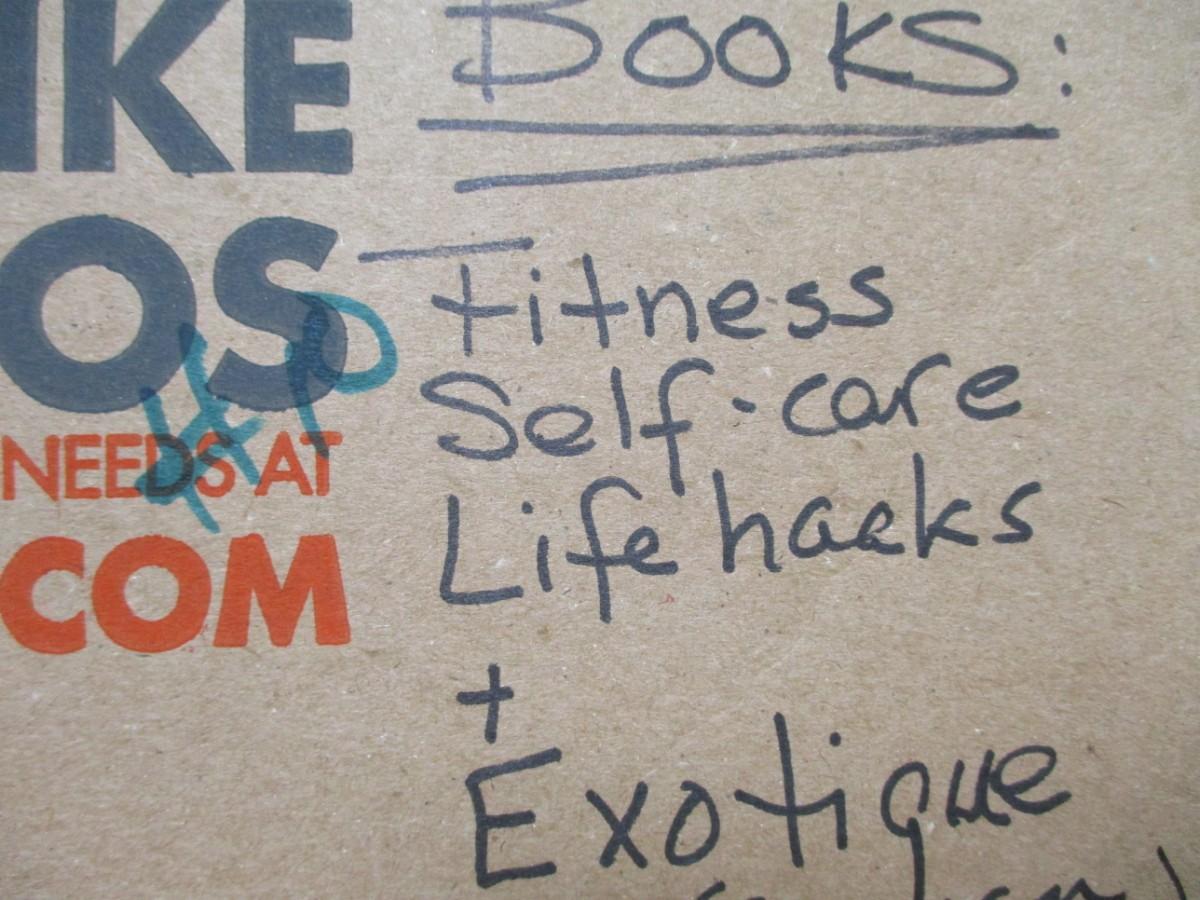 IKE
OS
NEEDS AT
COM
Books:
Fitness
Self-care
Life hacks
+
Exotique